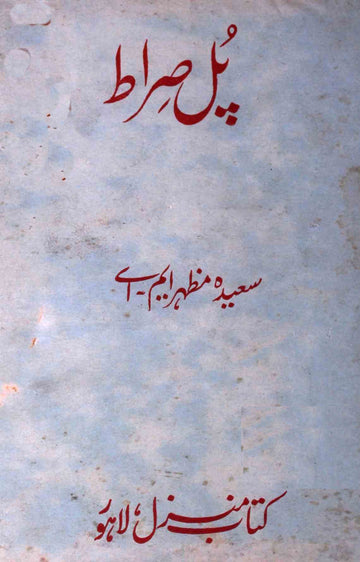 پُل صِراط
سعیدہ مظہر ایم۔اے
کتاب منزل، لاہور